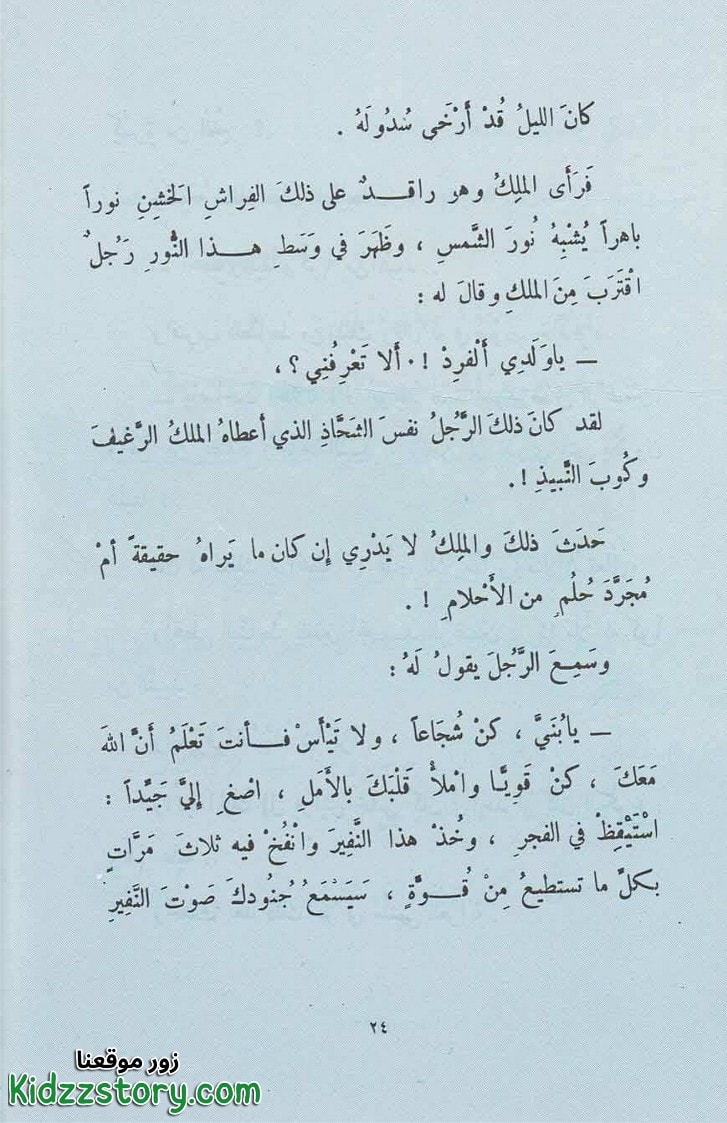 كانَ الليلُ قُدْ أَرْخَى سُدُولَهُ .
فَرَأَى الملِكُ وهو راقدٌ على ذلكَ الفِراشِ الخَشِنِ نوراً
باهراً يُشْبِهُ نُورَ الشَّمسِ ، وظَهَرَ في وَسَطِ هـذا النُّورِ رَجُلٌ
اقْتَرَبَ مِنَ الملكِ وقالَ له :
— ياوَلَدِي أَلْفرِدْ !٠ أَلا تَعْرِفُنِي ؟ ،
لقد كانَ ذلكَ الرَّجُلُ نفسَ الشَحَّاذِ الذي أعطاهُ الملكُ الرَّغيفَ
وكُوبَ النَّبيذِ !.
حَدَثَ ذلكَ والملِكُ لا يَدْرِي إن كان ما يَراهُ حقيقةً أمْ
مُجَرَّدَ حُلُمٍ من الأَحْلامِ !.
وسَمِعَ الرَّجُلَ يقولُ لَهُ :
— يابُنَيَّ ، كنْ شُجَاعاً ، ولا تَيْأَسْ فـأنتَ تَعْلَمُ أنَّ اللهَ
مَعَكَ ، كنْ قَويًّا وامْلأْ قَلْبَكَ بالأَمَلِ ، اصْغِ إليَّ جَيِّداً :
اسْتَيْقِظْ في الفجرِ ، وخُذْ هذا النَّفِيرَ وانْفُخْ فيه ثلاثَ مَرَّاتٍ
بكلِّ ما تستطيعُ مِنْ قُـوَّةٍ ، سَيَسْمَعُ جُنُودكَ صَوْتَ النَّفِيرِ
٢٤
زور موقعنا
Kidzzstory.com